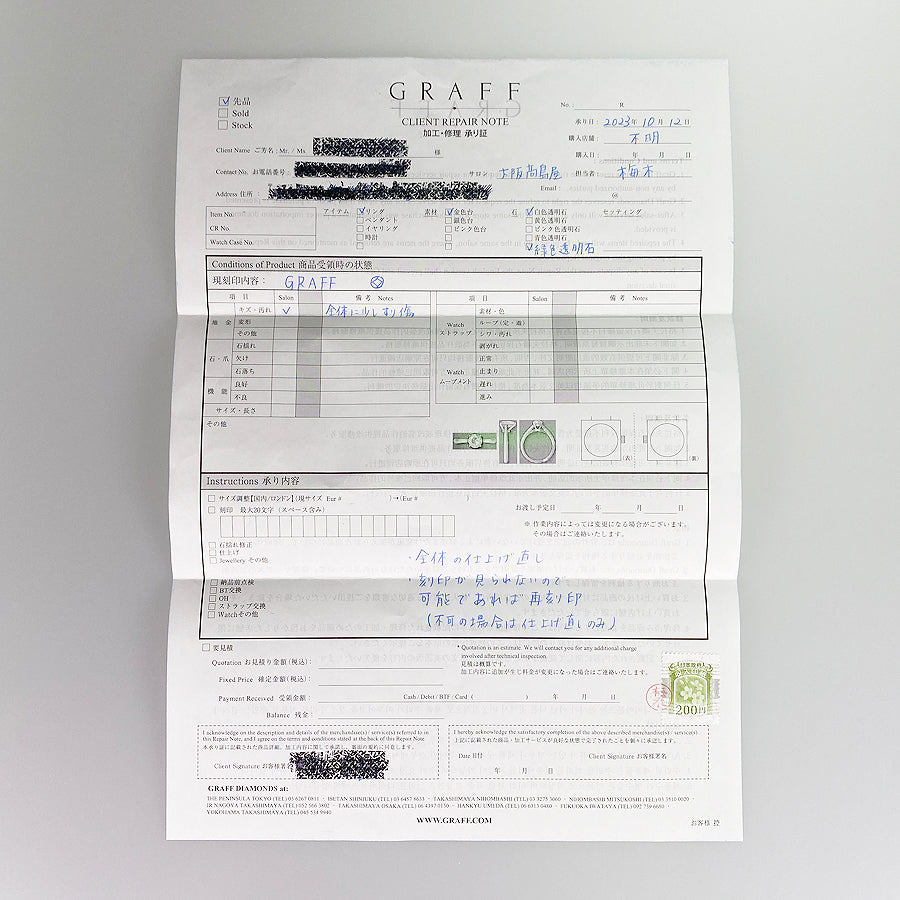 GRAFF
CLIENT REPAIR NOTE
加工・修理 承り証
☑ 先品
☐ Sold
☐ Stock
No. : R
承り日 : 2023年 10月 12日
購入店舗 : 不明
購入日 : 年 月 日
Client Name ご芳名 : Mr. / Ms 様
Contact No. お電話番号 :
サロン : 大阪高島屋 担当者 : 梅木
Address 住所 : Email : @
Item No.
CR No.
Watch Case No.
アイテム ☑ リング
☐ ペンダント
☐ イヤリング
☐ 時計
素材 ☑ 金色台
☐ 銀色台
☐ ピンク色台
石 ☑ 白色透明石
☐ 黄色透明石
☐ ピンク色透明石
☐ 青色透明石
☑ 緑色透明石
セッティング
Conditions of Product 商品受領時の状態
現刻印内容 : GRAFF
項 目 Salon 備 考 Notes
キズ・汚れ ✓ 全体に少しすり傷
地 金 変形
その他
石揺れ
石・爪 欠け
石落ち
機 能 良好
不良
サイズ・長さ
項 目 Salon 備 考 Notes
素材・色
Watch ストラップ ループ(定・遊)
シワ・汚れ
剥がれ
Watch ムーブメント 正常
止まり
遅れ
進み
その他
(表) (裏)
Instructions 承り内容
☐ サイズ調整【国内/ロンドン】(現サイズ Eur # )→(Eur # )
☐ 刻印 最大20文字 (スペース含み)
お渡し予定日 年 月 日
※ 作業内容によっては変更になる場合がございます。
その場合はご連絡いたします。
☐ 石揺れ修正
☐ 仕上げ
☐ Jewellery その他
・全体の仕上げ直し
・刻印が見られないので
可能であれば再刻印
(不可の場合は仕上げ直しのみ)
☐ 納品前点検
☐ BT交換
☐ OH
☐ ストラップ交換
☐ Watchその他
☐ 要見積
Quotation お見積り金額(税込) :
Fixed Price 確定金額(税込) :
Payment Received 受領金額 : Cash / Debit / BTF / Card ( ) 年 月 日
Balance 残金 :
* Quotation is an estimate. We will contact you for any additional charge
involved after technical inspection.
見積は概算です。
加工内容に追加が生じ料金が変更になった場合はご連絡いたします。
200円
I acknowledge on the description and details of the merchandise(s) / service(s) referred to in
this Repair Note, and I agree on the terms and conditions stated at the back of this Repair Note
本承り証に記載された商品詳細、加工内容に関して承諾し、裏面の規約に同意します。
Client Signature お客様署名
I hereby acknowledge the satisfactory completion of the above described merchandise(s) / service(s)
上記に記載された商品・加工サービスが良好な状態で完了されたことを個々に承諾します。
Date 日付 Client Signature お客様署名
年 月 日
GRAFF DIAMONDS at:
THE PENINSULA TOKYO (TEL) 03 6267 0811 ・ ISETAN SHINJUKU (TEL) 03 6457 8633 ・ TAKASHIMAYA NIHOMBASHI (TEL) 03 3275 3060 ・ NIHOMBASHI MITSUKOSHI (TEL) 03 3510 0020 ・
JR NAGOYA TAKASHIMAYA (TEL) 052 566 3802 ・ TAKASHIMAYA OSAKA (TEL) 06 4397 0130 ・ HANKYU UMEDA (TEL) 06 6313 0400 ・ FUKUOKA IWATAYA (TEL) 092 739 6680 ・
YOKOHAMA TAKASHIMAYA (TEL) 045 534 9940
WWW.GRAFF.COM
お客様 控